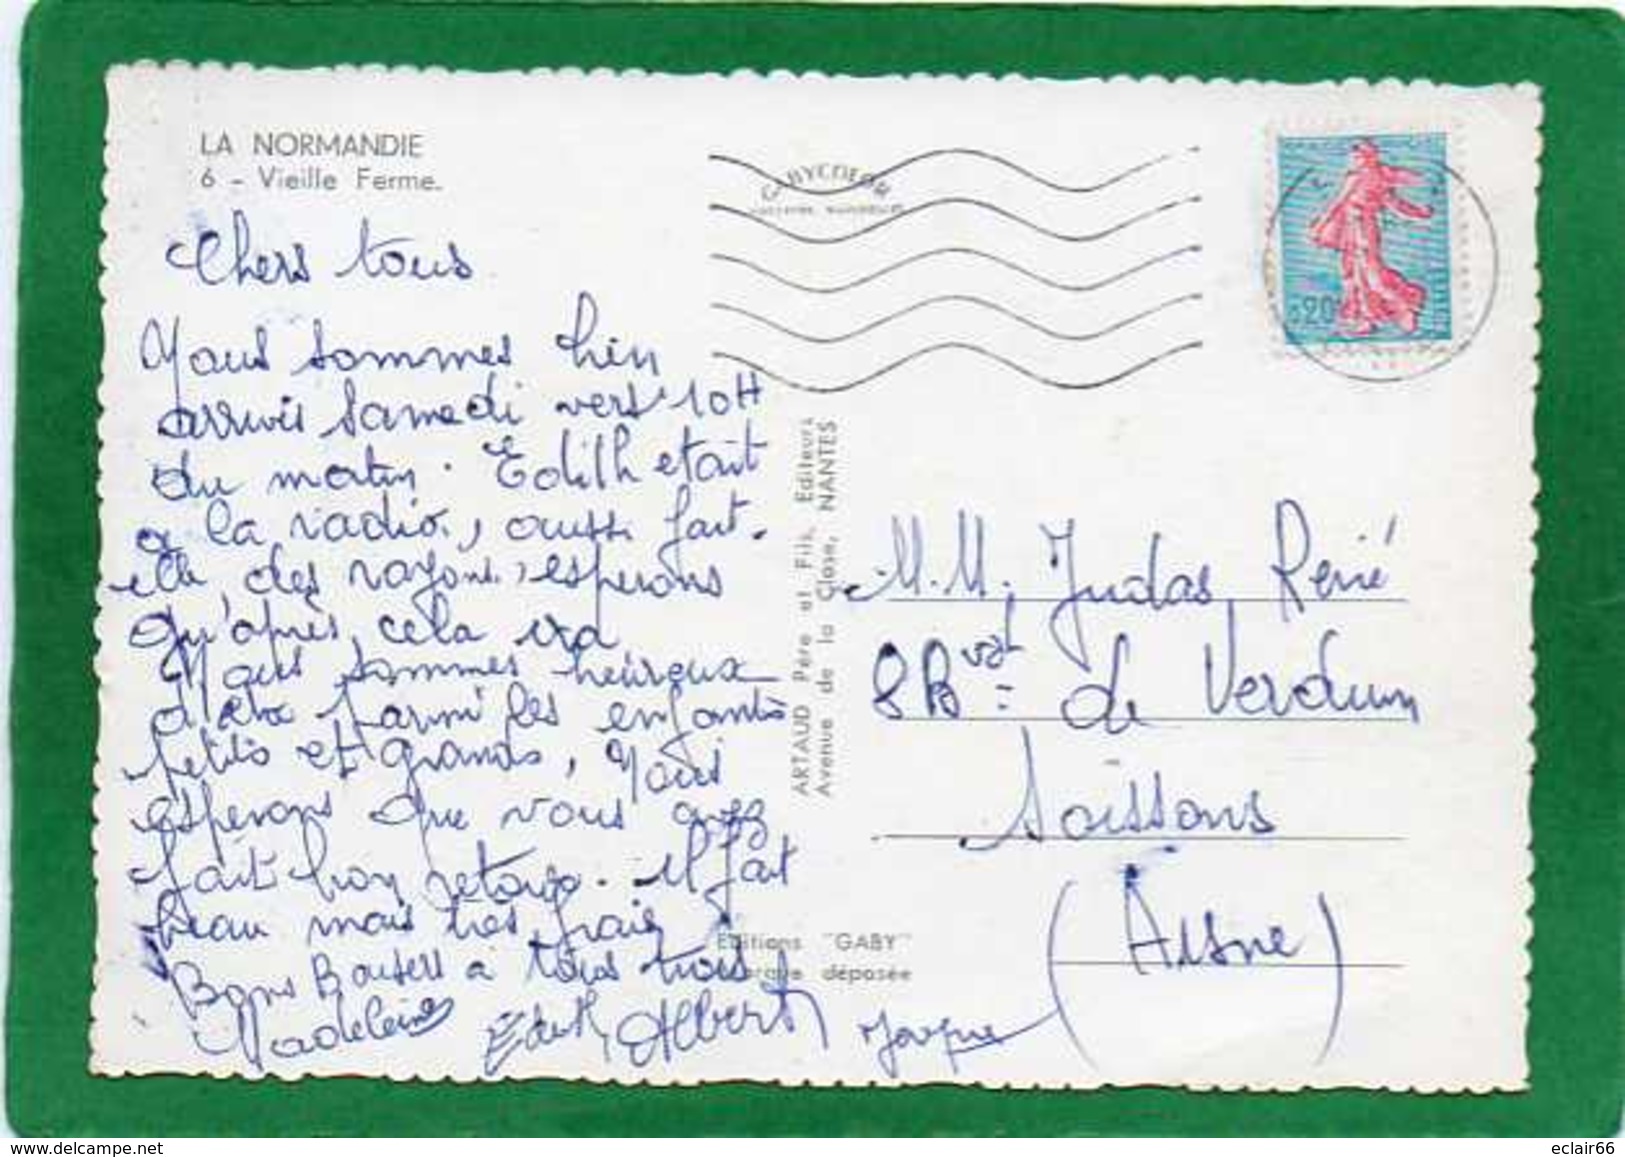 LA NORMANDIE
6 - Vieille Ferme.
GABYCOLOR
0,20
Chers tous
Nous sommes bien
arrivés samedi vers 10H
du matin. Edith etait
a la radio, aussi fait-
elle des rayons, esperons
qu'après cela ira
Nous sommes heureux
d'etre parmi les enfants
petits et grands, Nous
esperons que vous avez
fait bon retour. Il fait
beau mais tres frais
Bons Baisers a tous trois
Madeleine Edith Albert Jacques
ARTAUD Père et Fils, Editeurs
Avenue de la Close, NANTES
Editions "GABY"
Marque déposée
M.M. Judas René
8 Bvd de Verdun
Soissons
(Aisne)
eclair66